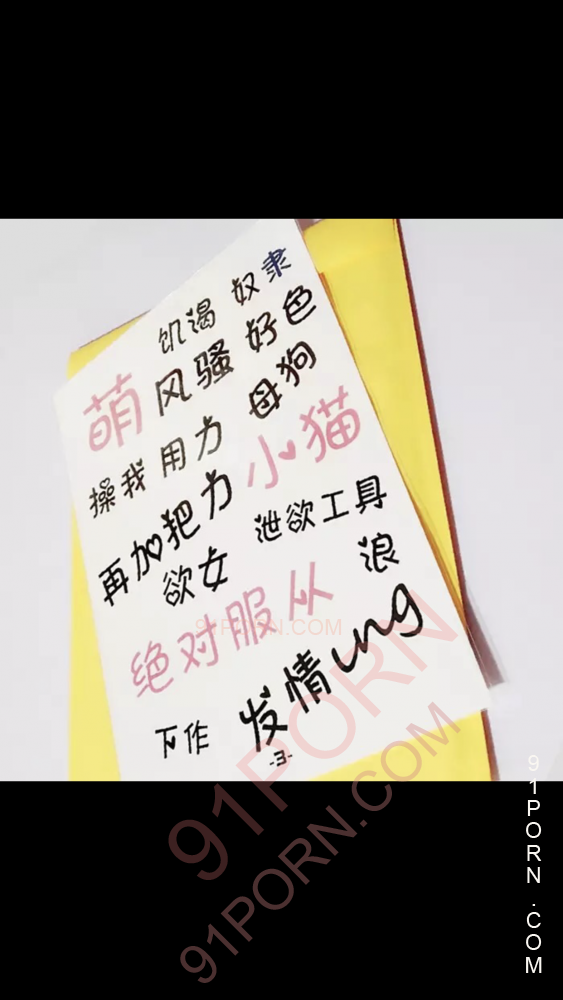 饥渴 奴隶
萌 风骚 好色
操我 用力 母狗
再加把力 小猫
欲女 泄欲工具
绝对服从 浪
下作 发情ing
-3-
91PORN.COM
91PORN
91PORN.COM
91PORN.COM